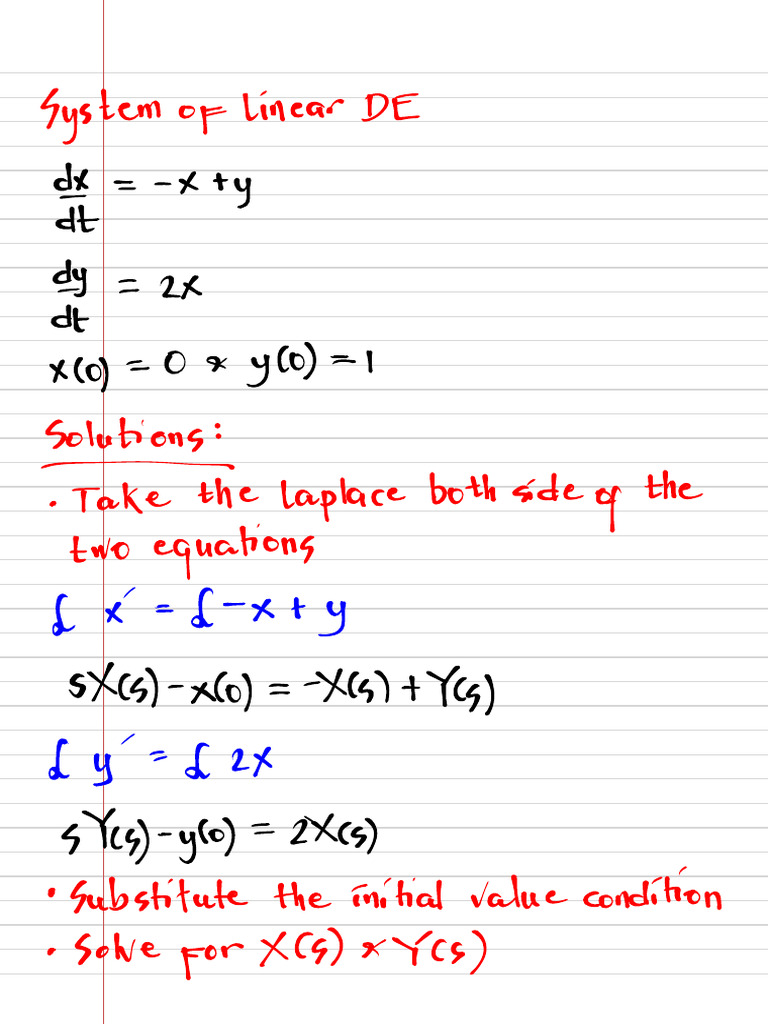 System of Linear DE
dx/dt = -x + y
dy/dt = 2x
x(0) = 0 & y(0) = 1
Solutions:
• Take the Laplace both side of the
two equations
£ x′ = £ -x + y
sX(s) - x(0) = -X(s) + Y(s)
£ y′ = £ 2x
sY(s) - y(0) = 2X(s)
• Substitute the initial value condition
• Solve for X(s) & Y(s)